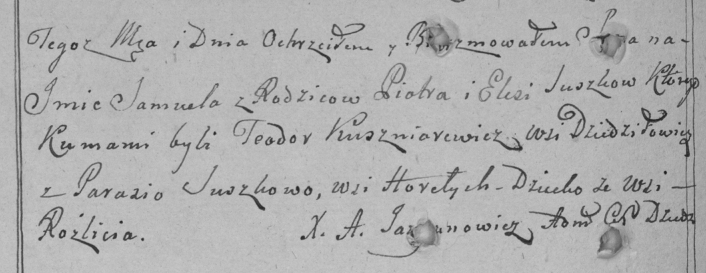 Tegoż Mca i Dnia Ochrzciłem y Bierzmowałem Syna na-
Imie Samuela z Rodzicow Piotra i Elesi Suszkow Którego
Kumami byli Teodor Kuszniarewicz wsi Dziedziłowicz
z Parasio Suszkowo, wsi Horełych - Dziecko ze wsi -
Roźlicia. X. A. Jazgunowicz Adm Cer Dziedz